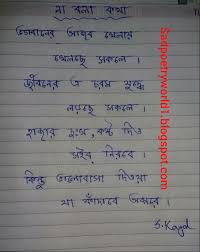 না বলা কথা
জীবনের আজব খেলায়
খেলছে সকলে ।
জীবনের এ চরম যুদ্ধে
লড়ছে সকলে ।
হাজার দুঃখ, কষ্ট দিও
সইব নিরবে ।
কিন্তু ভালোবাসা দিওয়া
যা কাঁদাবে আমারে ।
S. Kajol
Sadpoetryworld1.blogspot.com